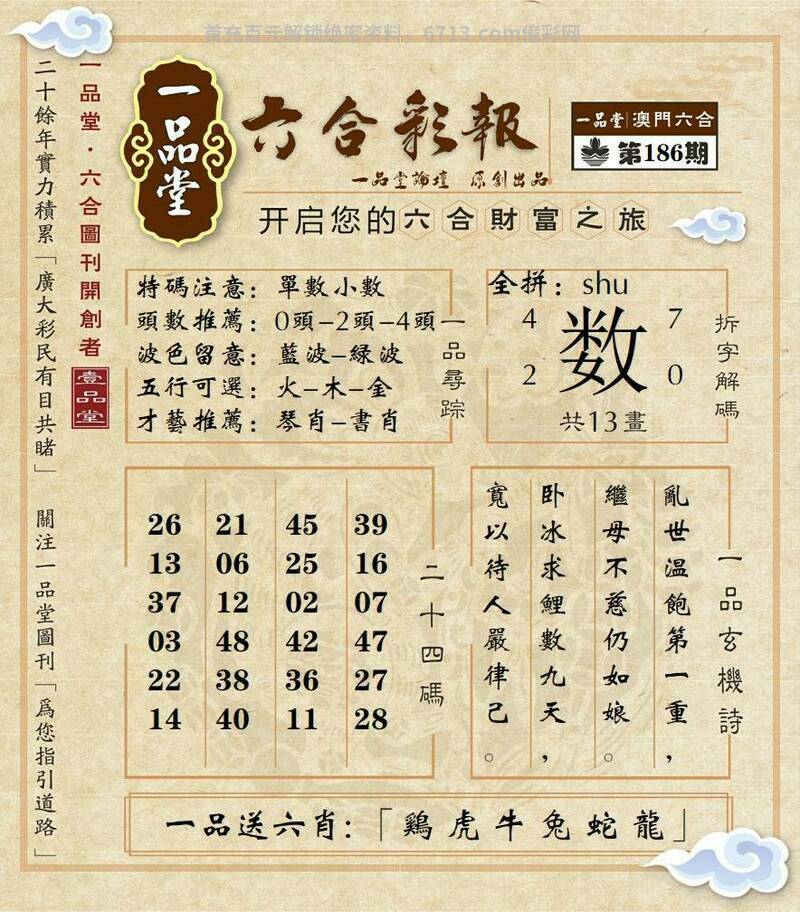 首充百元解锁绝密资料。6713.com億彩网
一品堂
六合彩報
一品堂論壇 原創出品
一品堂|澳門六合
第186期
开启您的六合財富之旅
二十餘年實力積累「廣大彩民有目共睹」 關注一品堂圖刊「爲您指引道路」
一品堂·六合圖刊開創者
壹品堂
特碼注意：單數小數
頭數推薦：0頭-2頭-4頭
波色留意：藍波-緑波
五行可選：火-木-金
才藝推薦：琴肖-書肖
一品尋踪
全拼：shu
4 7
数
2 0
共13畫
拆字解碼
26 21 45 39
13 06 25 16
37 12 02 07
03 48 42 47
22 38 36 27
14 40 11 28
二十四碼
一品玄機詩
亂世溫飽第一重，
繼母不慈仍如娘。
卧冰求鯉數九天，
寬以待人嚴律己。
一品送六肖:「鷄虎牛兔蛇龍」